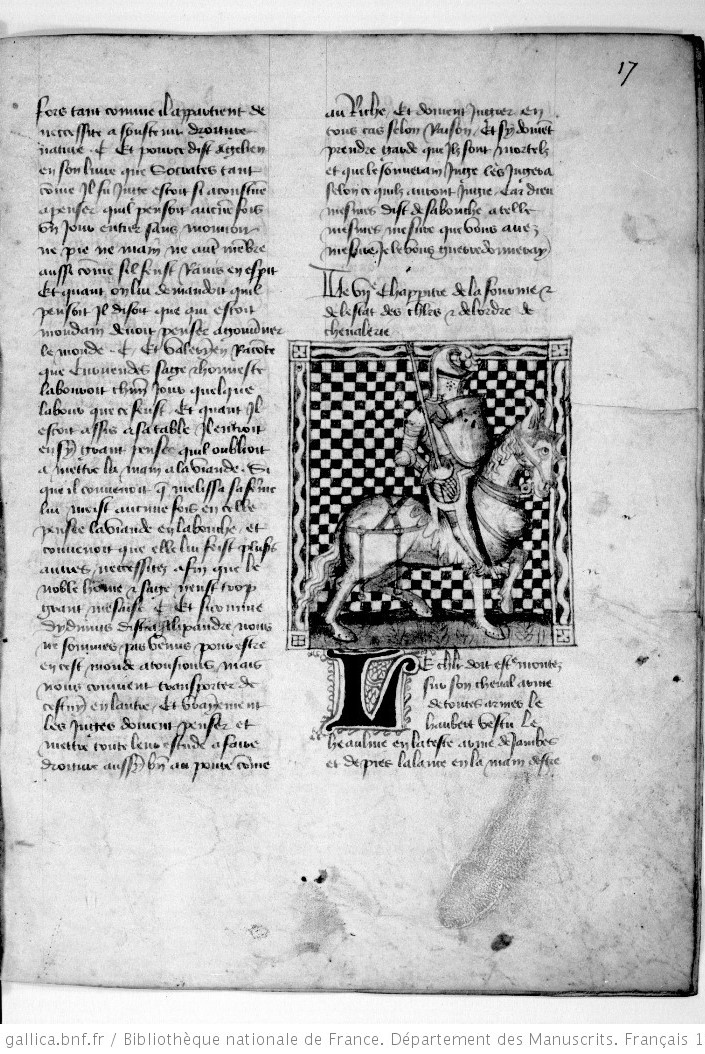 17
fors tant comme il appartient de
necessite a soustenir droiture
native. Et pource dist
en son livre que Socrates tant
côme il fu Juge estoit si acoustume
a penser quil pensoit aucune fois
Vn Jour entier sans mouvoir
ne pie ne main ne aut membre
aussi côme sil feust Ravis en esprit
Et quant on lui demandoit quil
pensoit Il disoit que qui estoit
mondain devoit penser a gouverner
le monde. Et Valerien Raconte
que sage & honneste
labouroit chûn Jour quelque
labour que ce feust. Et quant Il
estoit assis a sa table Il entroit
en sy grant pensee quil oublioit
a mettre la main a la viande. Si
que il convenoit q melissa sa feme
lui meist aucune fois en celle
pensee la viande en la bouche. et
convenoit que elle lui feist pluss
autres necessitez afin que le
noble home & sage neust trop
grant mesaise. Et si comme
dydimus dist a Alixandre nous
ne sommes pas venus pour estre
en cest monde a tousiours mais
nous convient transporter de
cestuy en lautre. Et vraiyement
les Juges doivent penser et
mettre toute leur estude a faire
droiture aussy bn au povre côme
au Riche. Et doivent Jugier en
tous cas selon Raison. Et sy doivet
prendre garde que Ilz sont mortelz
et que le souverain Juge les Jugera
selon ce quilz auront Jugie. Car dieu
mesmes dist de sa bouche a telle
mesmes mesure que vous avez
mesure Je le vous
Le vije Chappitre de la fourme &
de lestat des chlrs & de lordre de
chevalerie
LE chlr doit estre montez
sur son cheval arme
de toutes armes le
haubert vestu le
heaulme en la teste arme de Jambes
et de pies la lance en la main destre
gallica.bnf.fr / Bibliothèque nationale de France. Département des Manuscrits. Français 1